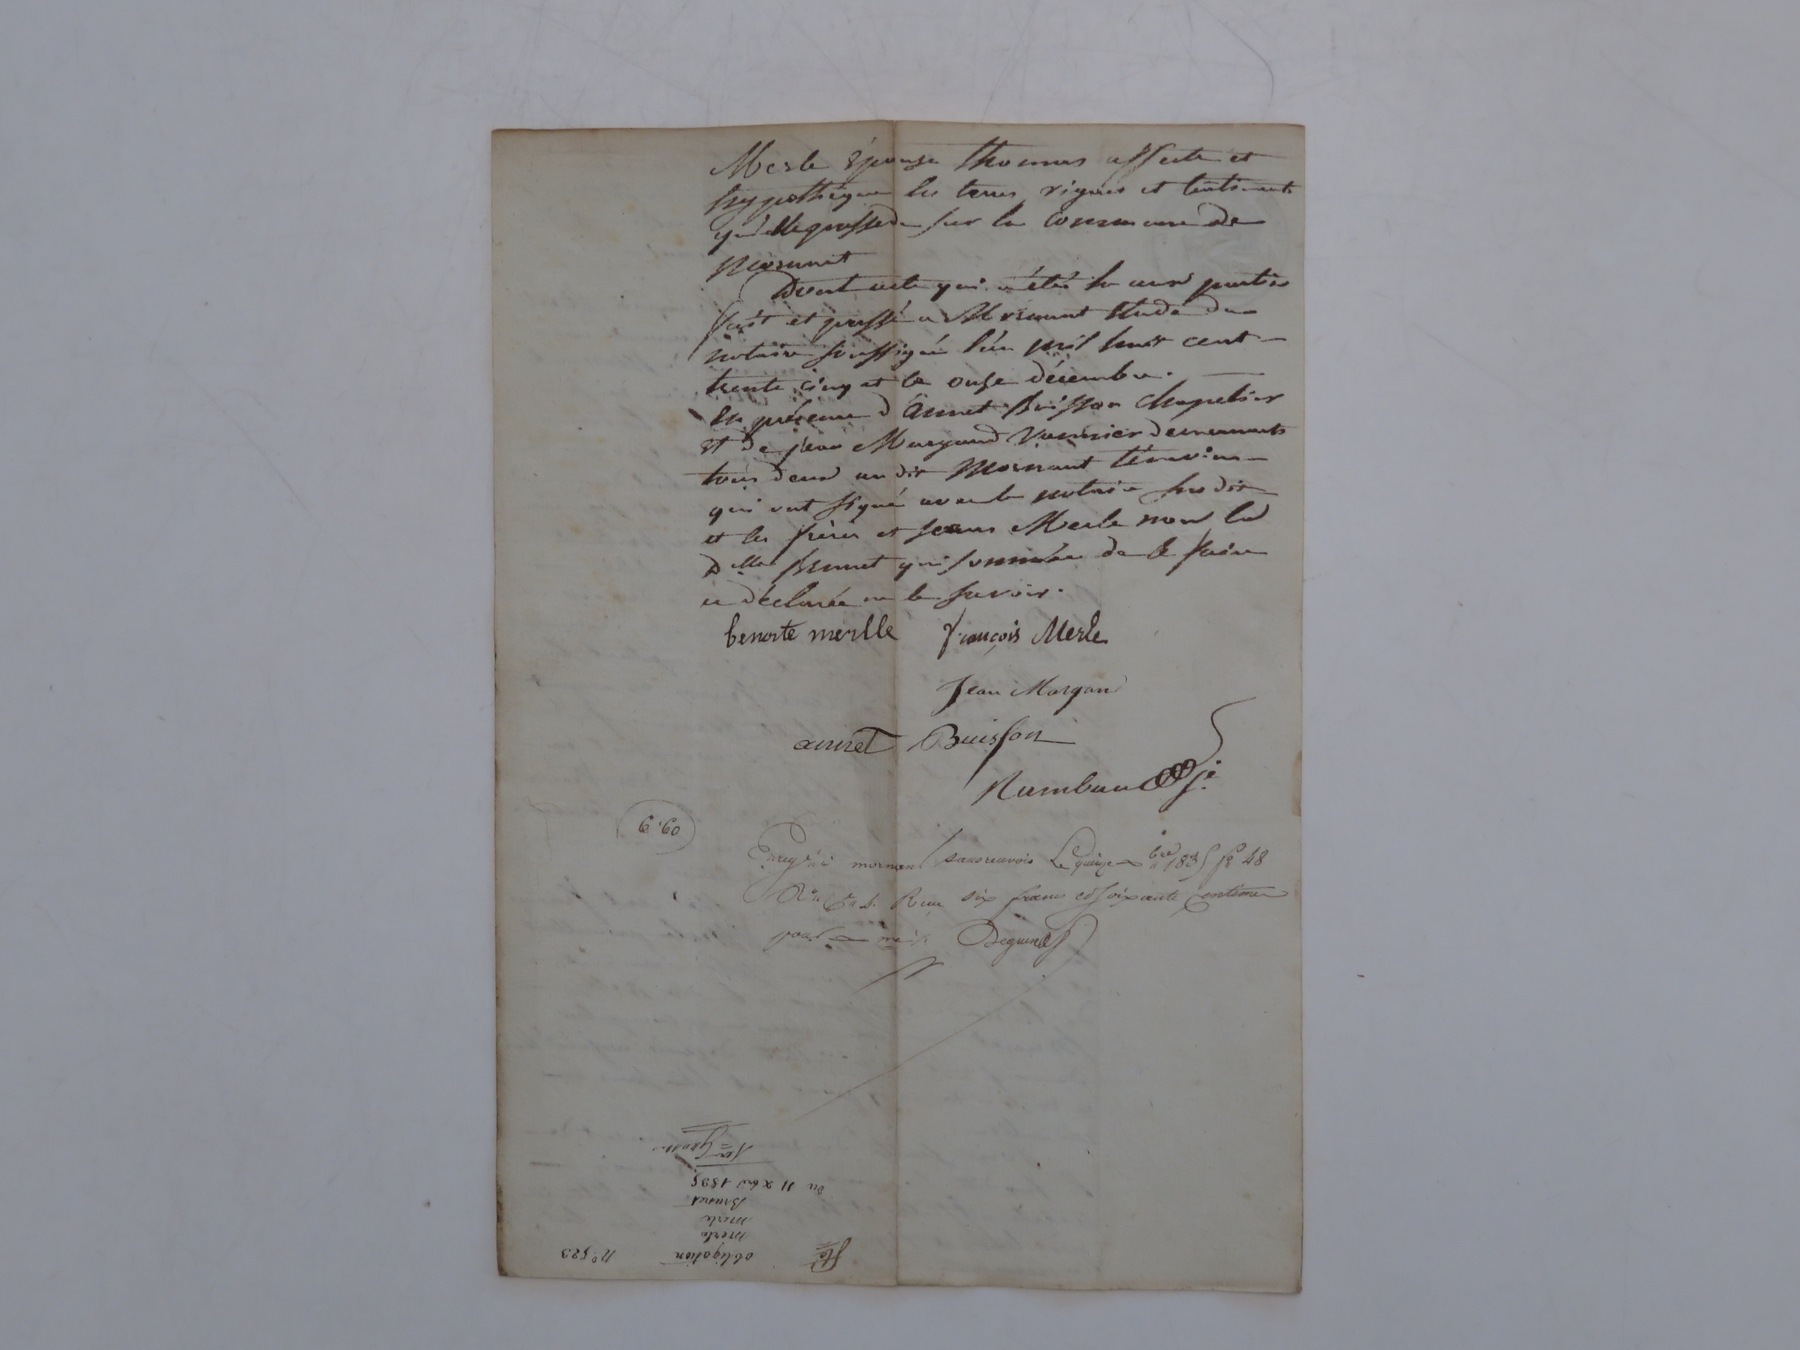 Merle épouse Thomas affecte et
hypothèque les terres vignes et tenements
qu'elle possède sur la commune de
Mornant
Dont acte qui a été lu aux parties
fait et passé a Mornant Etude du
notaire soussigné l'an mil huit cent
trente cinq et le onze décembre.
En présence d'Annet Buisson Chapelier
et de jean Margand Vannier demeurants
tous deux au dit Mornant témoins
qui ont signé avec le notaire susdit
et les frères et soeurs Merle non la
Dlle Brunet qui sommée de le faire
a déclarée ne le savoir.
benoite merlle françois Merle
Jean Margand
annet Buisson
Rambaud je
6.60
Enregistré à mornant sans renvois Le quinze Xbre 1835 fo 48
Ro Reçu six francs et soixante centimes
obligation No 523
Merle
Merle
Brunet
du 11 Xbre 1835
1re Grosse